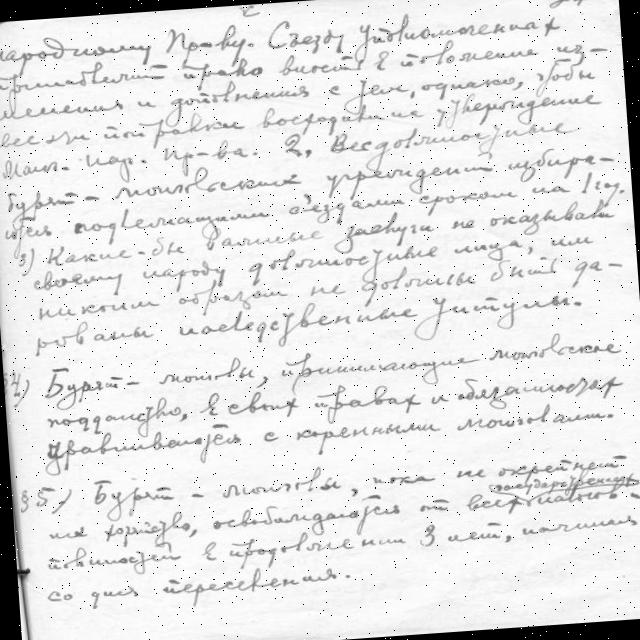 народному Пр-ву. Съезду уполномоченных
предоставляется право вносить в положение из-
менения и дополнения с тем, однако, чтобы
все эти поправки восходили на утверждение
Монг. Нар. Пр-ва. 2, Все должностные
бурят-монгольских учреждений избира-
ются подлежащими съездами сроком на 1 год.
3) Какие-бы важные заслуги не оказывали
своему народу должностные лица, им
никоим образом не должны быть да-
рованы наследственные титулы.
4) Бурят-монголы, принимающие монгольское
подданство, в своих правах и обязанностях
уравниваются с коренными монголами.
§ 5) Бурят-монголы, пока не окрепнет
их хозяйство, освобождаются от всех
повинностей в продолжении 3 лет, начиная
со дня переселения.